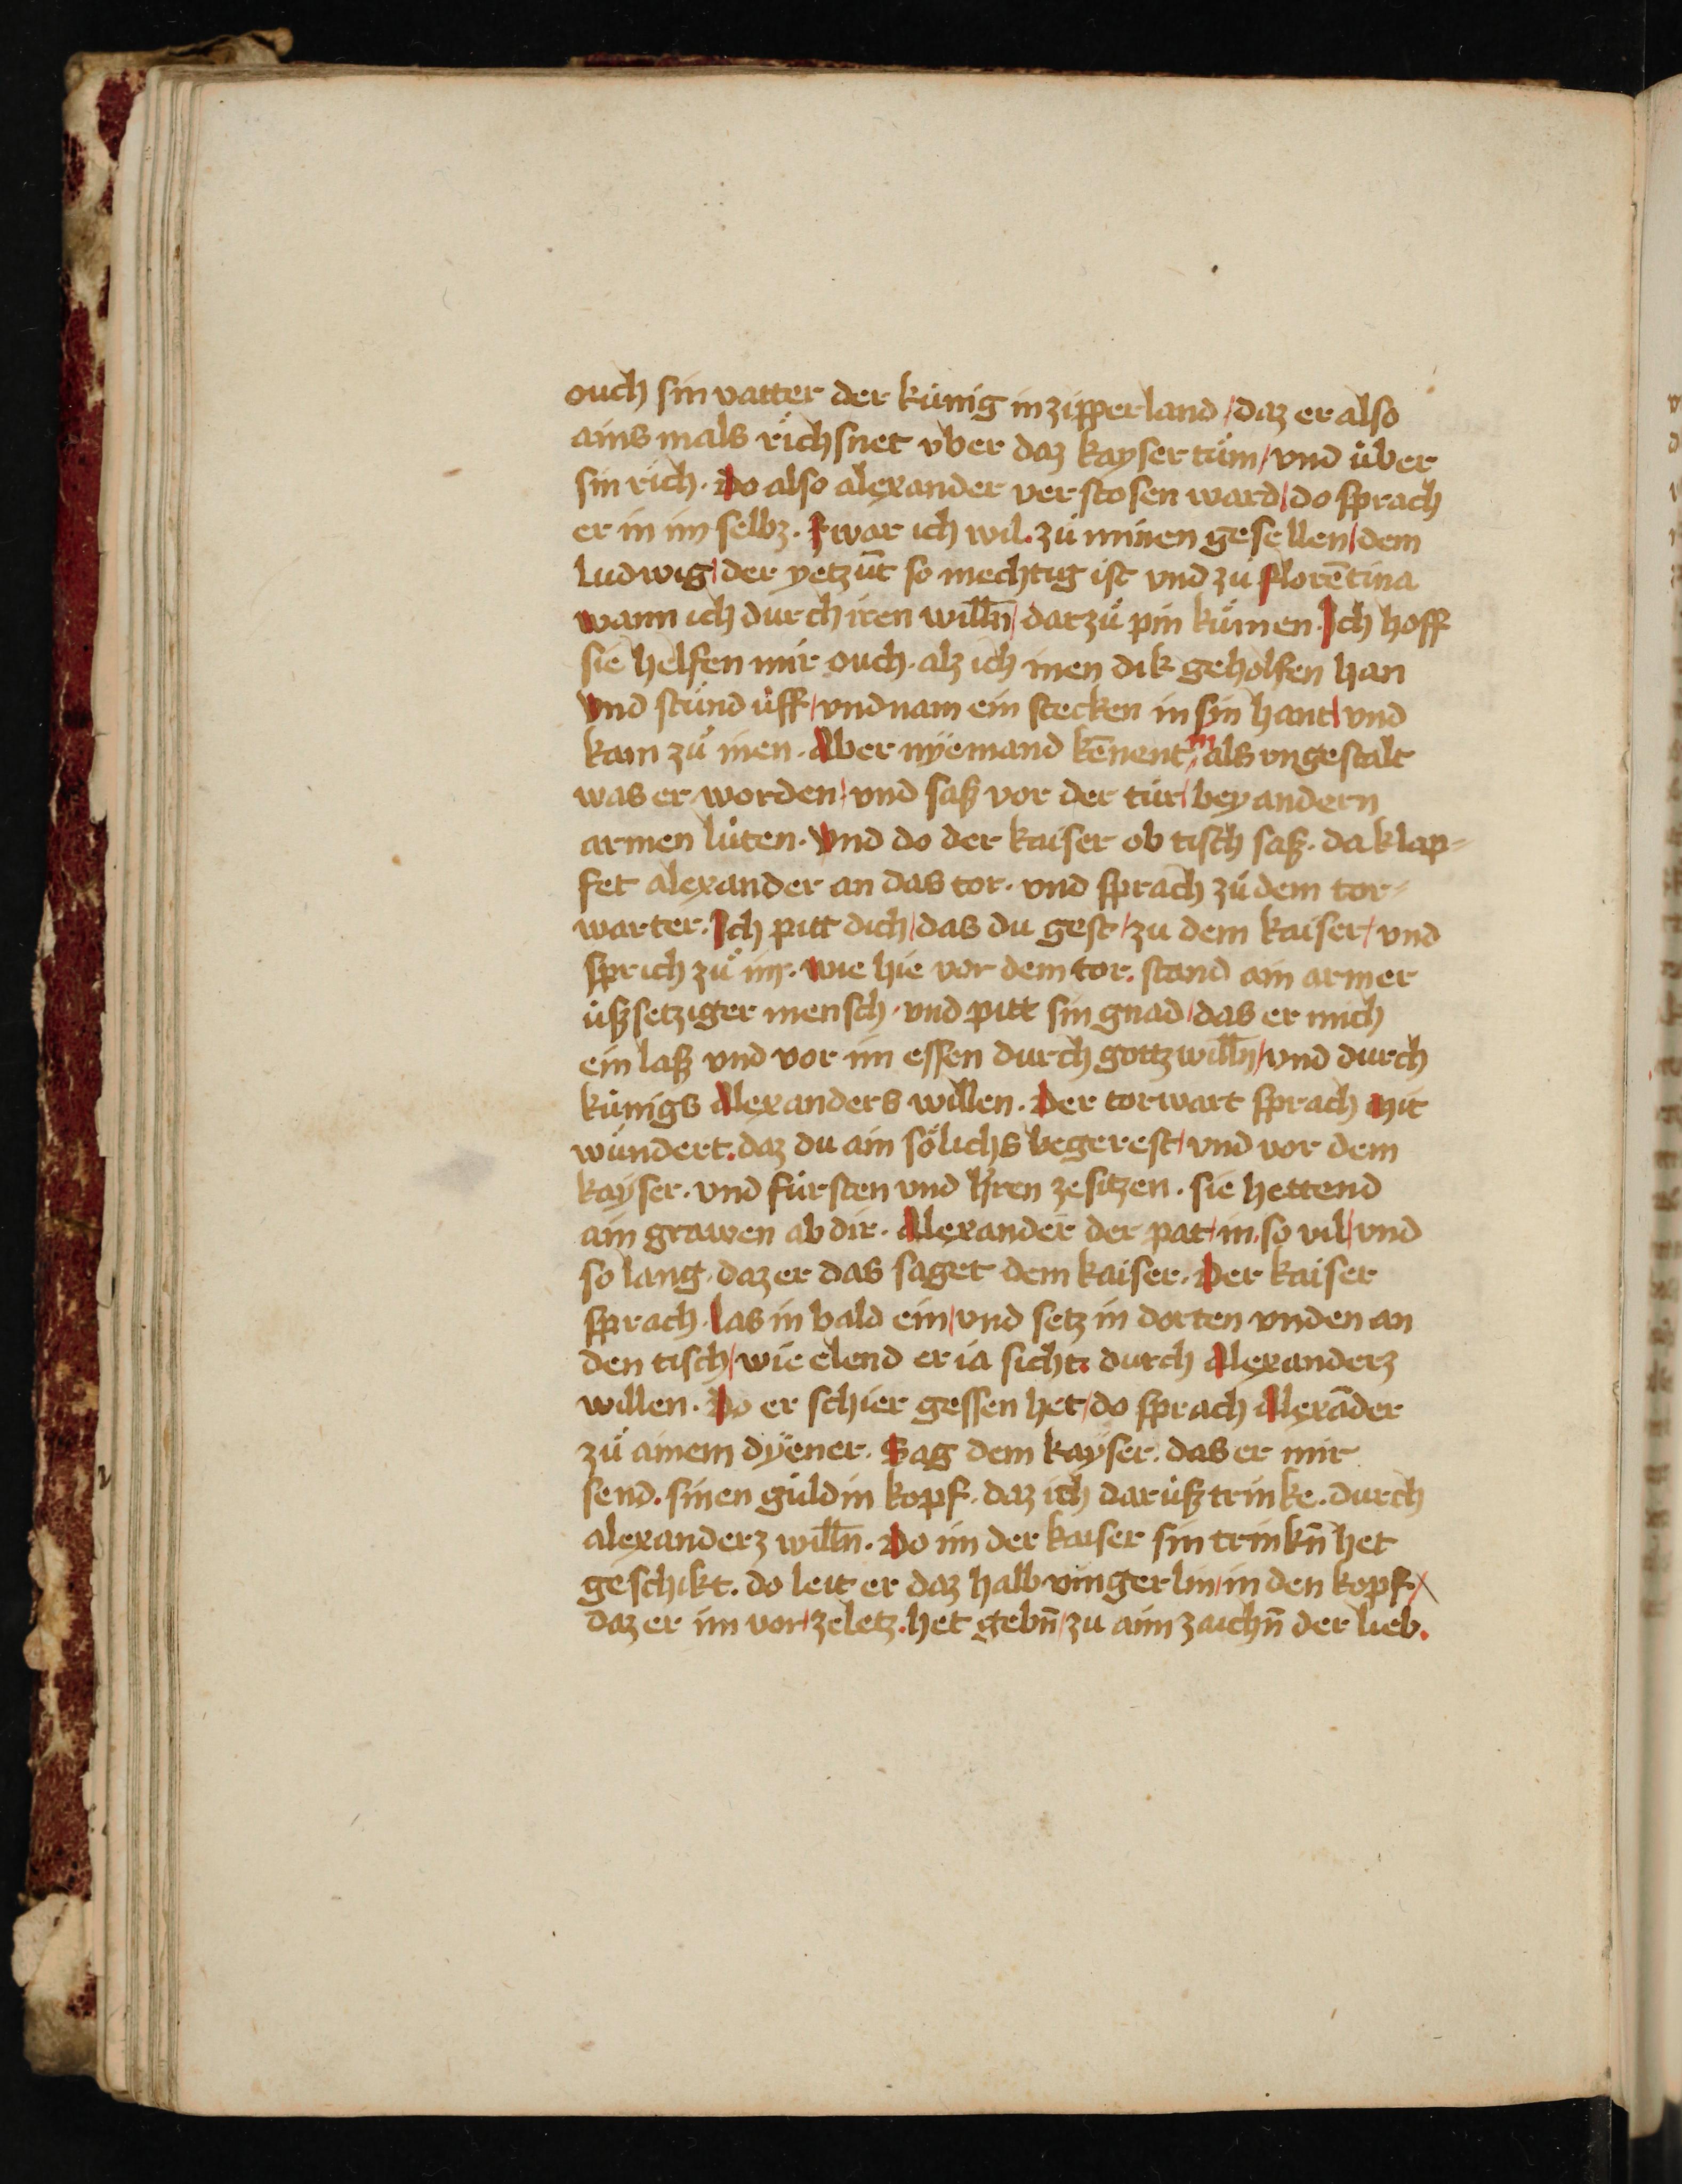 ouch sin vatter der kúnig in zipperland / daz er also
ains mals richsnet vber daz kaysertům / vnd úber
sin rich · Do also alexander verstosen ward / do sprach
er in im selbz · Zwar ich wil · zů minen gesellen / dem
ludwig / der yetzūt so mechtig ist vnd zů florētina
wann ich durch iren willn̄ / darzů pin kůmen · Ich hoff
sie helfen mir ouch · alz ich inen dik geholfen han
Vnd stůnd ůff / vnd nam ein stecken in sin hant / vnd
kam zů inen · Aber nyemand kēnent in als vngestalt
was er worden / vnd saß vor der túr / bey andern
armen lúten · Vnd do der kaiser ob tisch saß · da klap-
fet alexander an das tor · vnd sprach zů dem tor-
warter · Ich pitt dich / das du gest / zu dem kaiser / vnd
sprich zů im · wie hie vor dem tor · stand ain armer
ůßsetziger mensch · vnd pitt sin gnad / das er mich
ein laß vnd vor im essen durch gottz willn̄ / vnd durch
kúnigs Alexanders willen · Der torwart sprach mir
wundert · daz du ain sölichs begerest / vnd vor dem
kayser · vnd fúrsten vnd h̕ren ze sitzen · sie hettend
ain grawen ab dir · Alexander der pat / in · so vil / vnd
so lang · daz er das saget dem kaiser · Der kaiser
sprach · las in bald ein / vnd setz in dorten vnden an
den tisch / wie elend er ia sicht · durch Alexanderz
willen · Do er schier gessen het / do sprach Alexāder
zů ainem dyener · Sag dem kayser · das er mir
send · sinen guldin kopf · daz ich darůß trinke · durch
alexanderz willn̄ · Do im der kaiser sin trinkn̄ het
geschikt · do leit er daz halb vingerlin / in den kopf /
daz er im vor / zeletz · het gebn̄ / zu aim zaichn̄ der lieb ·